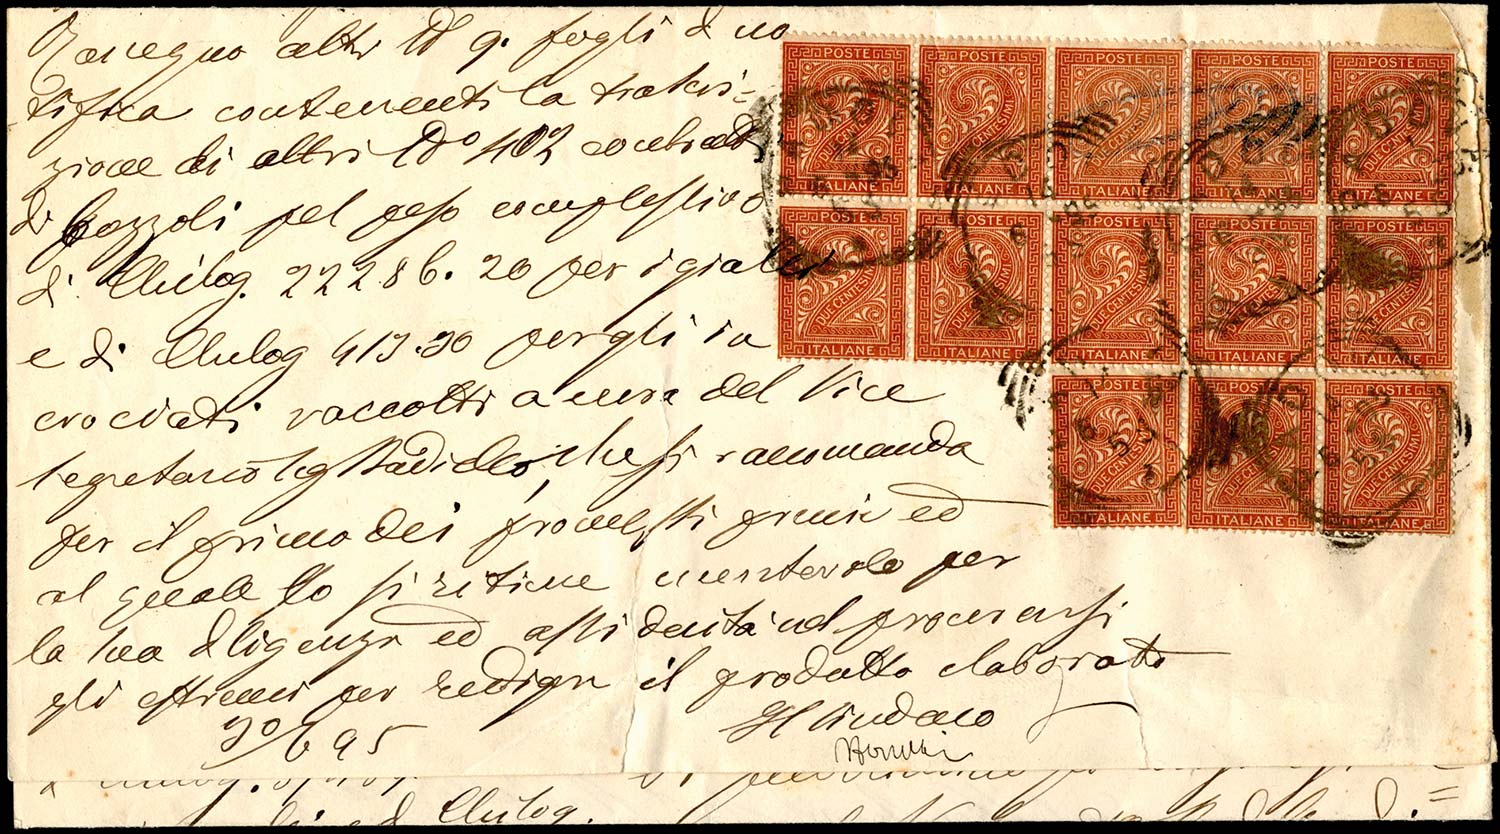 Rassegno altri N° 9. fogli di no
tifica contenenti la trascri-
zione di altri N° 402 contratti
di bozzoli pel peso complessivo
di Chilog. 22286.20 per i gialli
e di Chilog 413.30 per gli in
crociati raccolti a cura del Vice
Segretario che si raccomanda
per il primo dei promessi premi ed
al quale lo si ritiene meritevole per
la sua diligenza ed assiduità nel procurarsi
gli estremi per redigere il prodotto elaborato
30/6 95
Il Sindaco
POSTE DUE CENTESIMI 2 ITALIANE
POSTE DUE CENTESIMI 2 ITALIANE
POSTE DUE CENTESIMI 2 ITALIANE
POSTE DUE CENTESIMI 2 ITALIANE
POSTE DUE CENTESIMI 2 ITALIANE
DUE CENTESIMI 2 ITALIANE
DUE CENTESIMI 2 ITALIANE
DUE CENTESIMI 2 ITALIANE
DUE CENTESIMI 2 ITALIANE
DUE CENTESIMI 2 ITALIANE
POSTE DUE CENTESIMI 2 ITALIANE
POSTE DUE CENTESIMI 2 ITALIANE
POSTE DUE CENTESIMI 2 ITALIANE
ed Chilog.